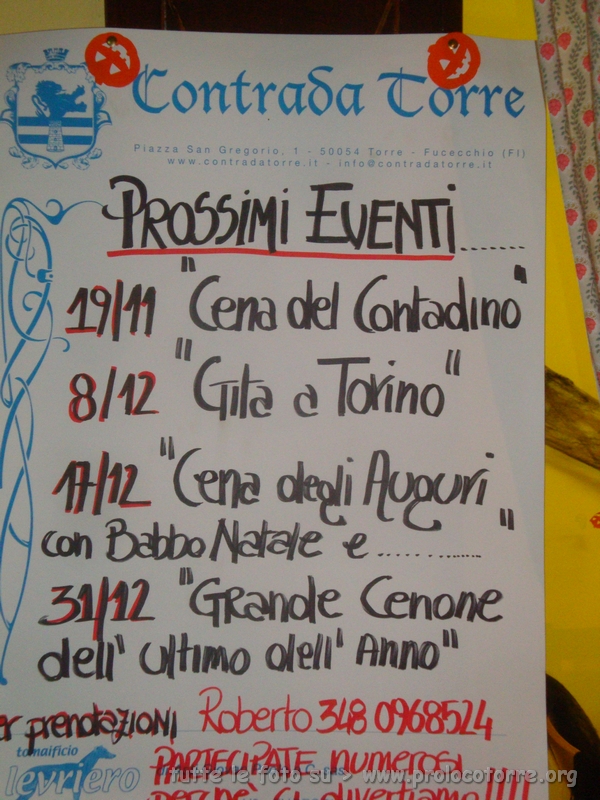 Contrada Torre
Piazza San Gregorio, 1 - 50054 Torre - Fucecchio (FI)
www.contradatorre.it - info@contradatorre.it
PROSSIMI EVENTI.......
19/11 "Cena del Contadino"
8/12 "Gita a Torino"
17/12 "Cena degli Auguri
con Babbo Natale e ............."
31/12 "GRANDE CENONE
dell' ultimo dell' Anno"
er prenotazioni Roberto 348 0968524
tomaificio
levriero
PARTECIPATE numerosi
tutte le foto su - www.prolocotorre.org
perche ci divertiamo!!!!!